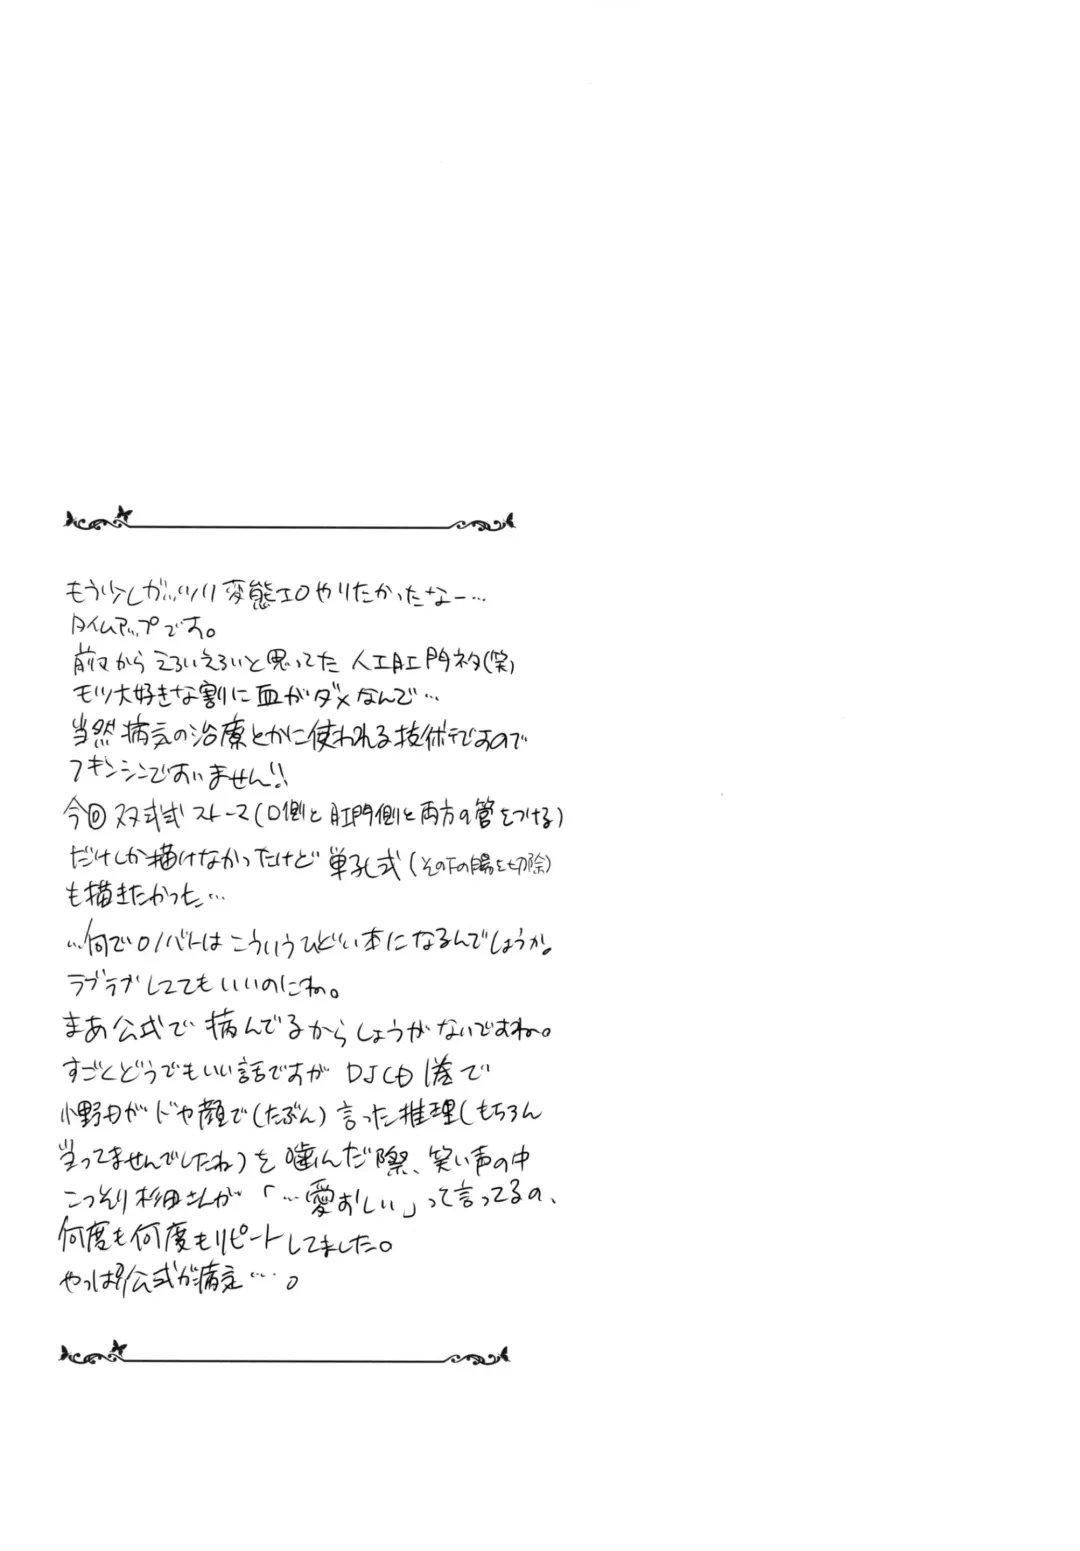 もう少しガッツリ変態エロやりたかったなー…
タイムアップです。
前々からえろいえろいと思ってた 人工肛門ネタ(笑)
モツ大好きな割に血がダメなんで…
当然病気の治療とかに使われる技術ですので
フキンシンですいません!!
今回 双孔式 ストーマ(口側と肛門側と両方の管をつける)
だけしか描けなかったけど 単孔式(その下の腸を切除)
も描きたかった…
…何でロノバトは こういうひどい本になるんでしょうか。
ラブラブしててもいいのにね。
まあ公式で 病んでるからしょうがないですね。
すごくどうでもいい話ですが DJCD 1巻で
小野Dがドヤ顔で(たぶん)言った推理(もちろん
当ってませんでしたね)を噛んだ際、笑い声の中
こっそり杉田さんが「…愛おしい」って言ってるの、
何度も何度もリピートしてました。
やっぱり公式が病定…。